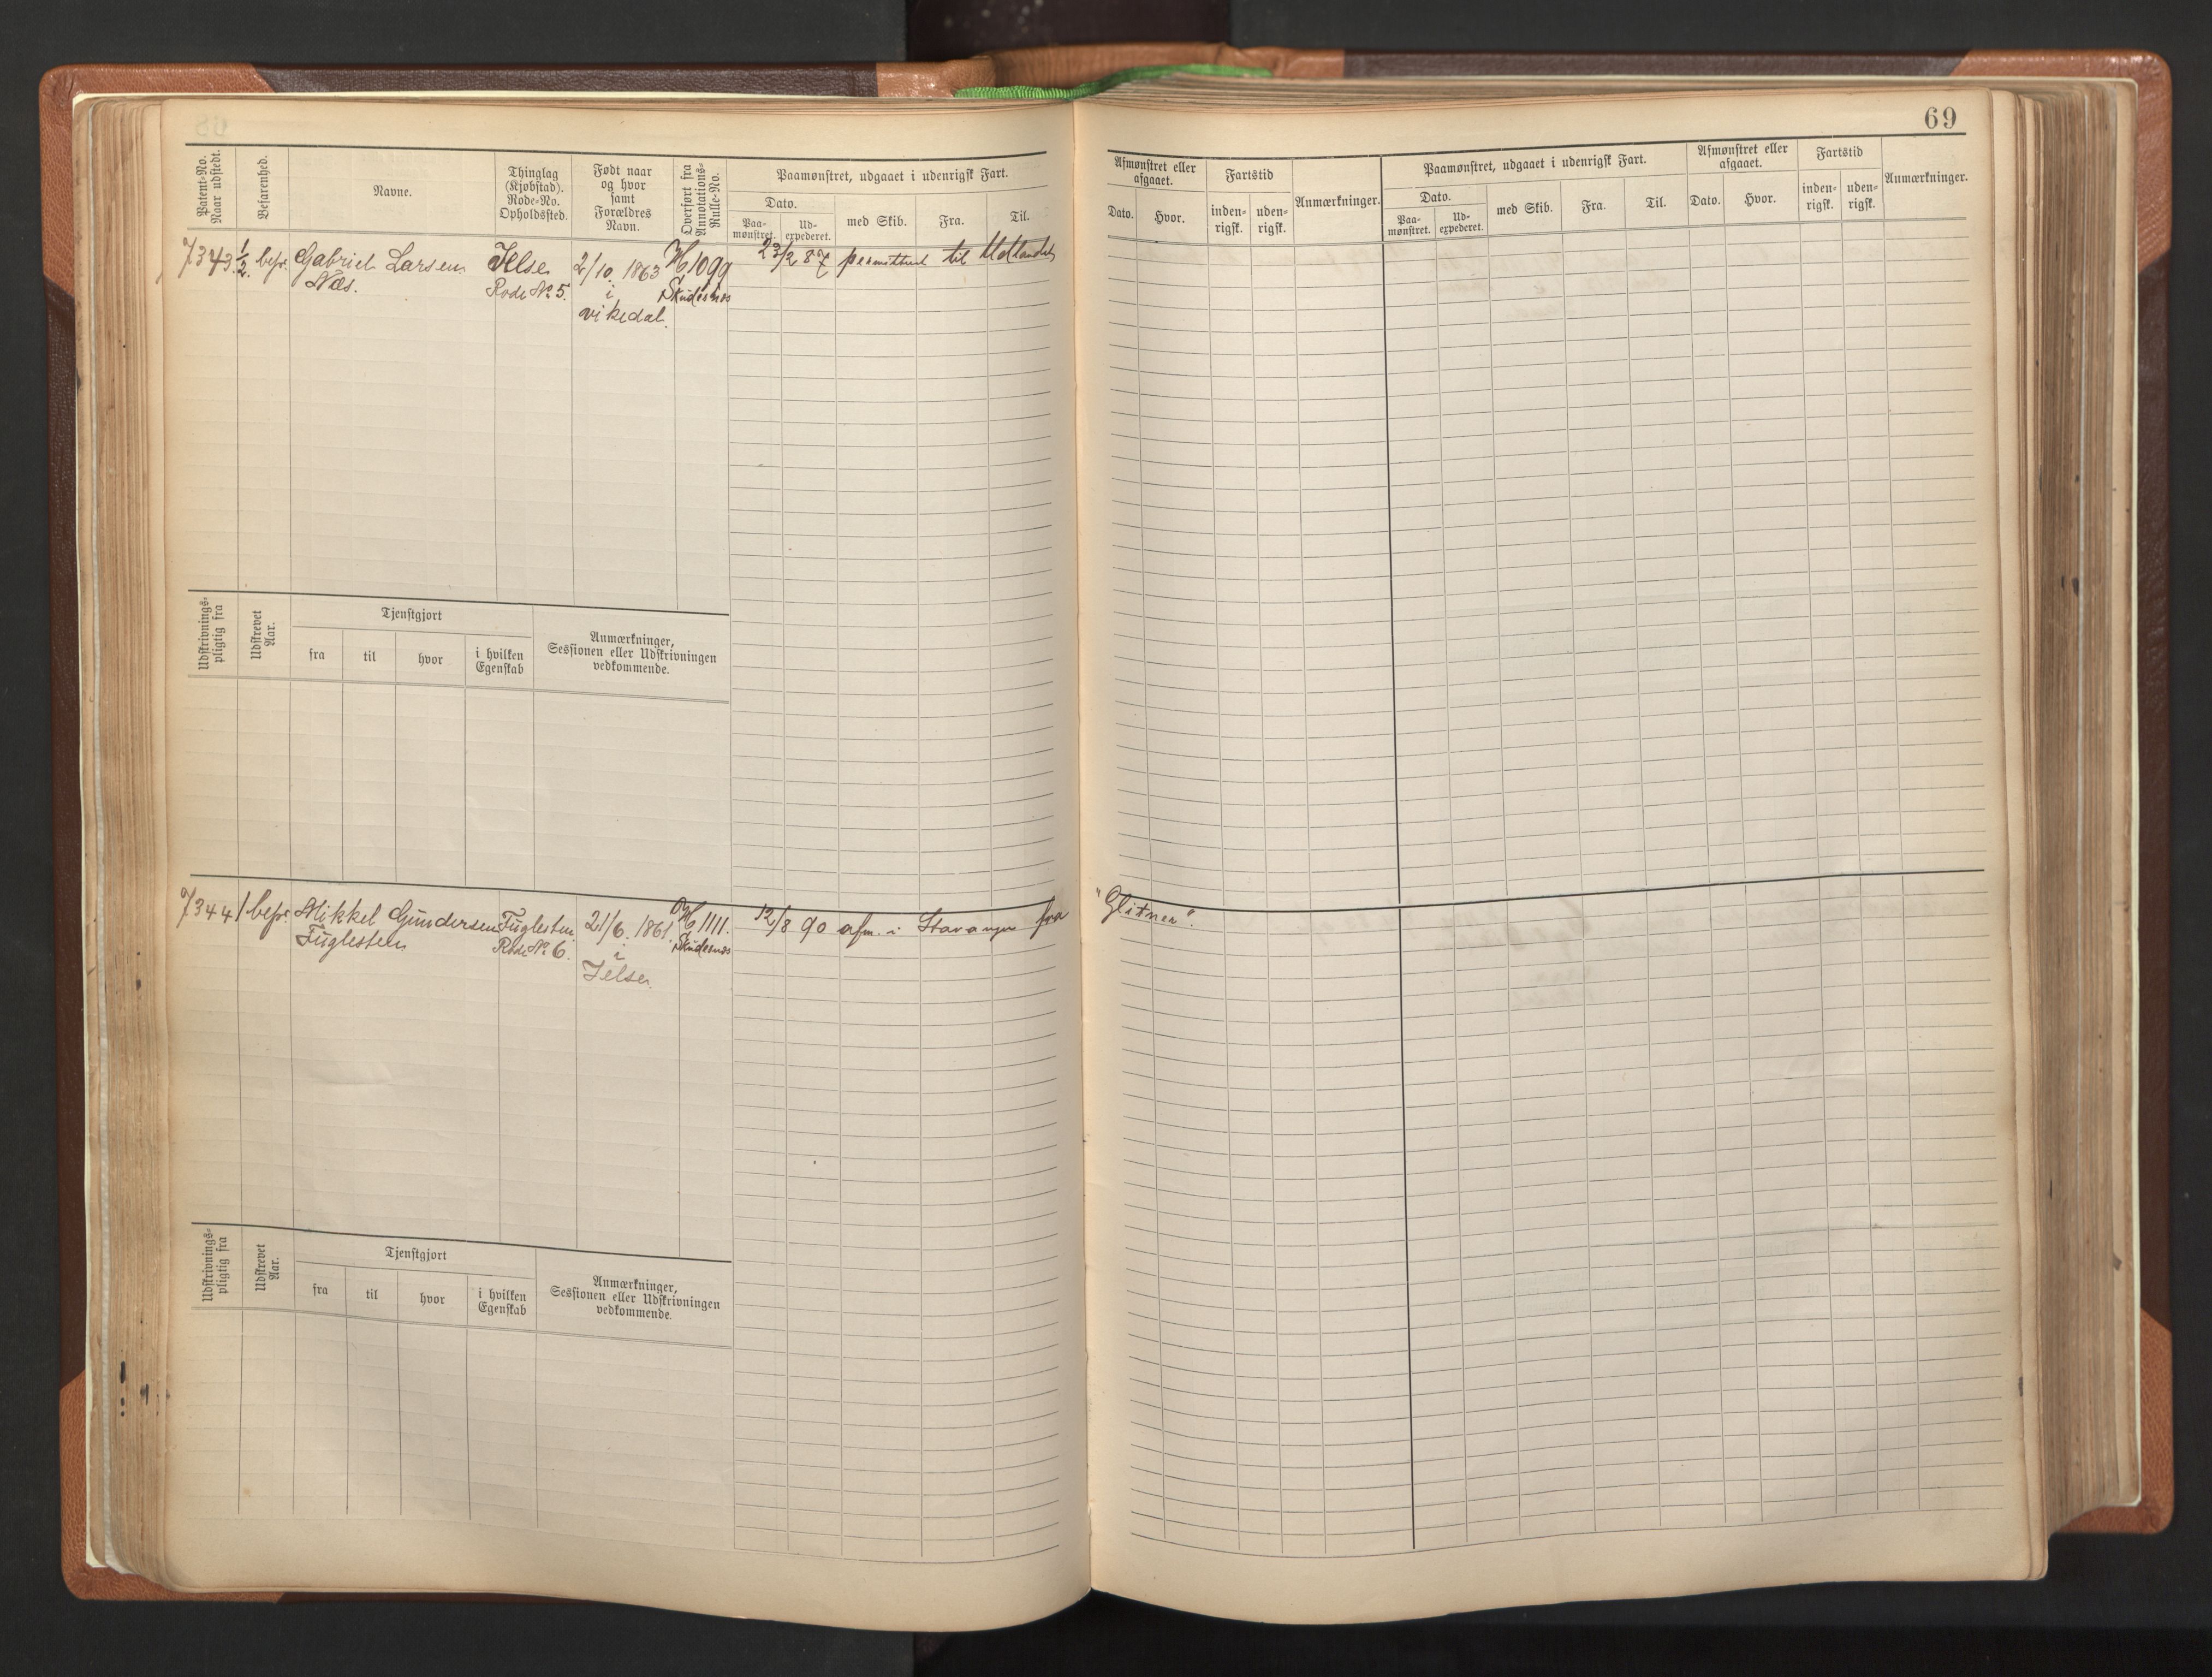 69
Patent-No.
Naar udstedt.
Befarenhed.
Navne.
Thinglag
(Kjøbstad).
Rode-No.
Opholdssted.
Født naar
og hvor
samt
Forældres
Navn.
Overført fra
Annotations-
Rulle-No.
Paamønstret, udgaaet i udenrigsk Fart.
Dato.
Paa-
mønstret.
Ud-
expederet.
med Skib.
Fra.
Til.
Afmønstret eller
afgaaet.
Dato.
Hvor.
Fartstid
inden-
rigsk.
uden-
rigsk.
Anmærkninger.
Paamønstret, udgaaet i udenrigsk Fart.
Dato.
Paa-
mønstret.
Ud-
expederet.
med Skib.
Fra.
Til.
Afmønstret eller
afgaaet.
Dato.
Hvor.
Fartstid
inden-
rigsk.
uden-
rigsk.
Anmærkninger.
7343 1/2 befr. Gabriel Larsen Jelse 2/10 1863 H 1099 23/2 87 permitteret til Udlandet
Næs. Rode No 5. i Skudesnæs
vikedal.
Udskrivnings-
pligtig fra
Udskrevet
Aar.
Tjenstgjort
fra
til
hvor
i hvilken
Egenskab
Anmærkninger,
Sessionen eller Udskrivningen
vedkommende.
7344 1 befr. Mikkel Gundersen Fuglesten 21/6 1861 H 1111. 12/8 90 afm. i Stavanger fra "Glitner".
Fuglesteen Rode No 6. i Skudesnæs
Jelse.
Udskrivnings-
pligtig fra
Udskrevet
Aar.
Tjenstgjort
fra
til
hvor
i hvilken
Egenskab
Anmærkninger,
Sessionen eller Udskrivningen
vedkommende.